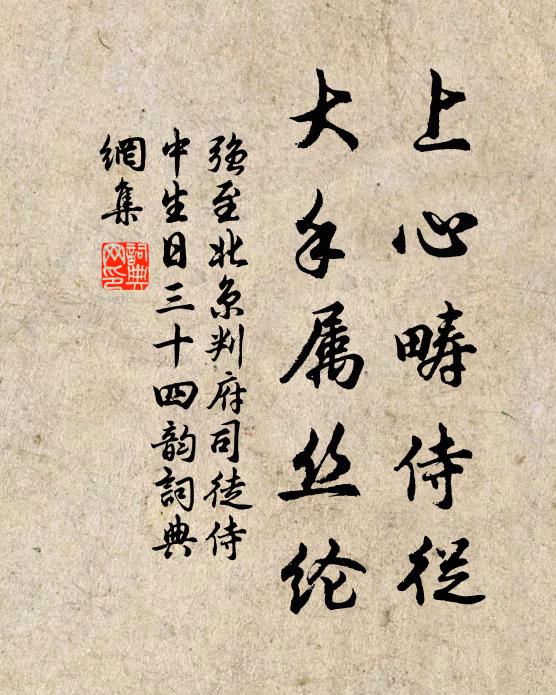 上心畴侍從
大手属丝纶
強至北京判府司徒侍
中生日三十四韵詞典
網集
詞典
网印